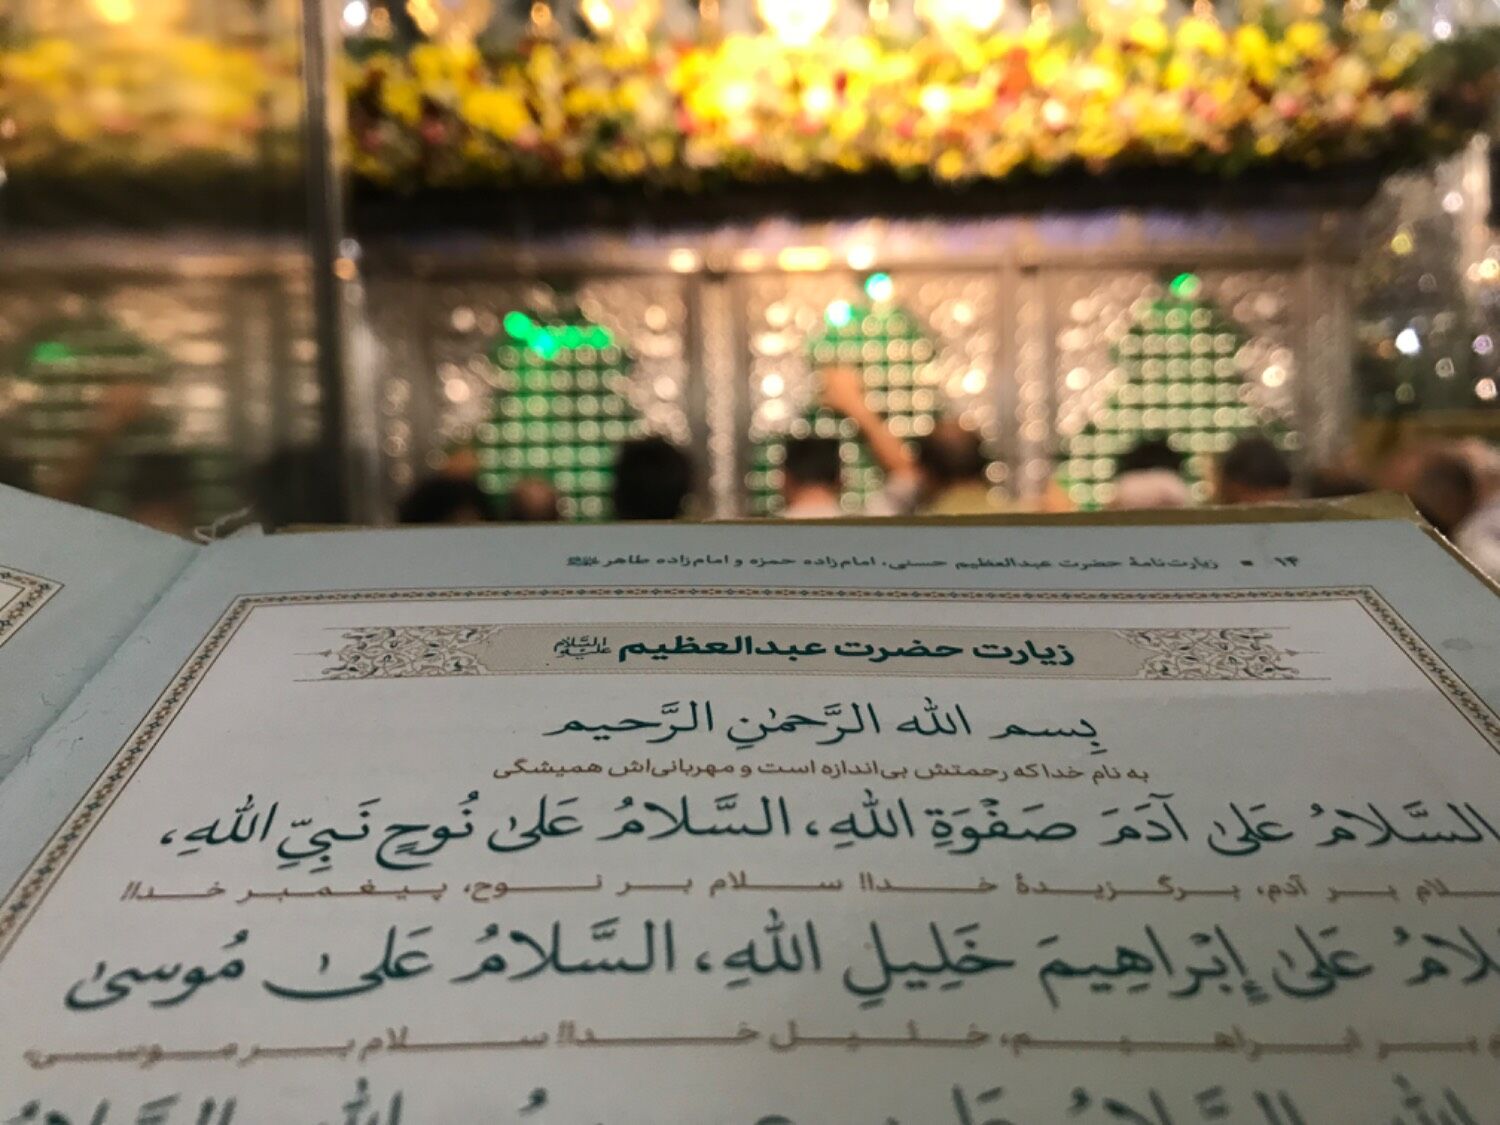 ۱۴ ▪ زیارت‌نامهٔ حضرت عبدالعظیم حسنی، امام‌زاده حمزه و امام‌زاده طاهر
زیارت حضرت عبدالعظیم علیه‌السّلام
بِسم الله الرَّحمٰنِ الرَّحیم
به نام خدا که رحمتش بی‌اندازه است و مهربانی‌اش همیشگی
السَّلامُ عَلیٰ آدَمَ صَفْوَةِ اللهِ، السَّلامُ عَلیٰ نُوحٍ نَبِيِّ اللهِ،
سلام بر آدم، برگزیدهٔ خدا! سلام بر نوح، پیغمبر خدا!
عَلیٰ إِبْراهِیمَ خَلِیلِ اللهِ، السَّلامُ عَلیٰ مُوسیٰ
بر ابراهیم، خلیل خدا! سلام بر موسی